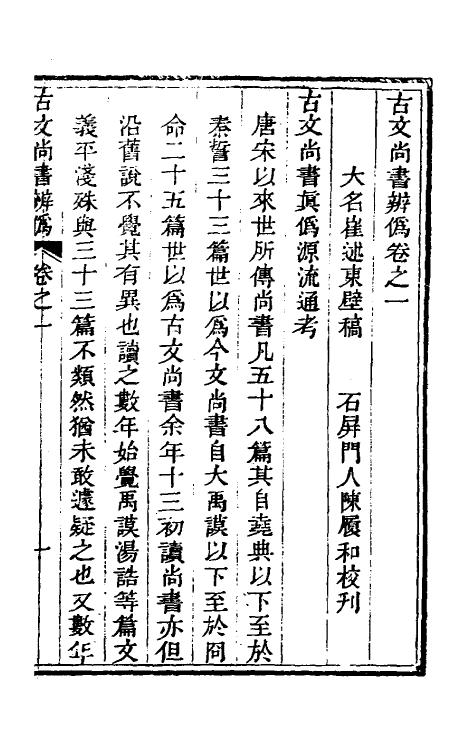 古文尚書辨僞卷之一
大名崔述東壁稿　石屏門人陳履和校刊
古文尚書眞僞源流通考
唐宋以來世所傳尚書凡五十八篇其自堯典以下至於
秦誓三十三篇世以爲今文尚書自大禹謨以下至於冏
命二十五篇世以爲古文尚書余年十三初讀尚書亦但
沿舊說不覺其有異也讀之數年始覺禹謨湯誥等篇文
義平淺殊與三十三篇不類然猶未敢遽疑之也又數年
古文尚書辨僞　卷之一　一